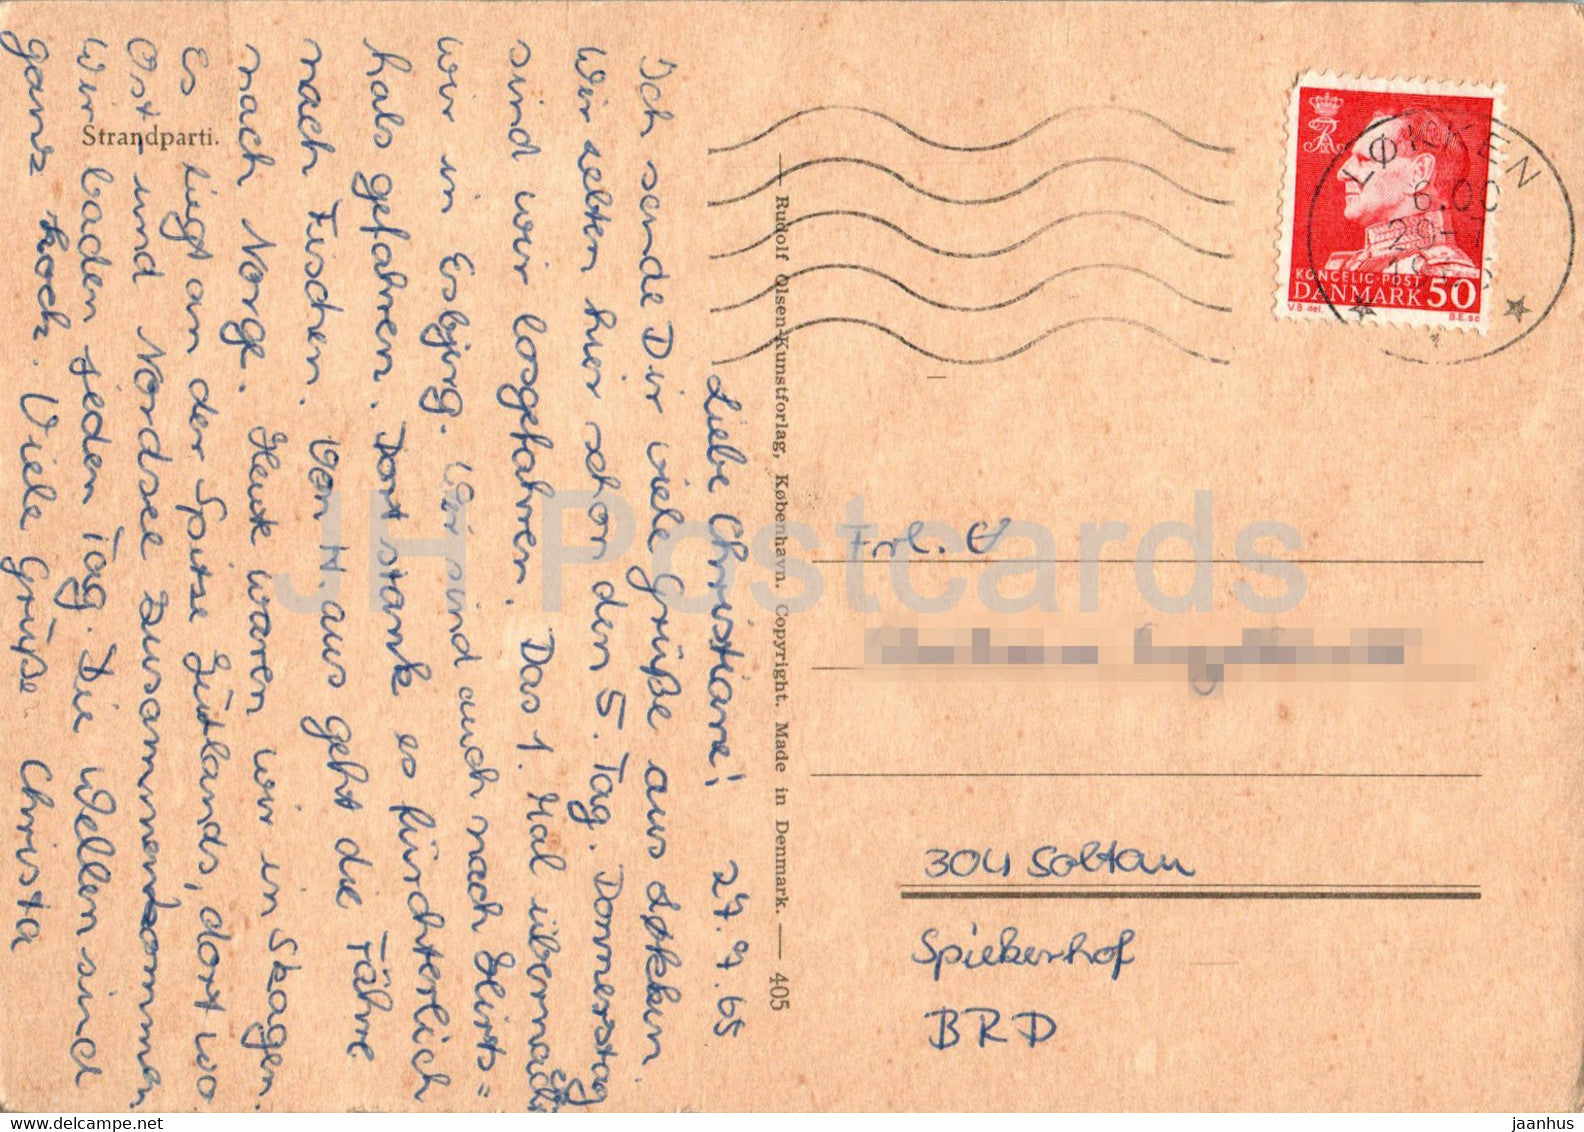 Strandparti.
Liebe Christiane! 27.7.65
Ich sende Dir viele Grüße aus Løkken.
Wir zelten hier schon den 5. Tag. Donnerstag
sind wir losgefahren. Das 1. Mal übernach
wir in Esbjerg. Wir sind auch nach Hirts=
hals gefahren. Dort stank es fürchterlich
nach Fischen. Von H. aus geht die Fähre
nach Norge. Heute waren wir in Skagen.
Es liegt am der Spitze Jütlands, dort wo
Ost- und Nordsee zusammenkommen
Wir baden jeden Tag. Die Wellen sind
ganz hoch. Viele Grüße Christa
— Rudolf Olsen-Kunstforlag, København. Copyright. Made in Denmark. — 405
LØKKEN
6.00
KONGELIG-POST
DANMARK 50
V.B del.
B.E.sc
Frl.
304 Soltau
Spiekerhof
BRD
JH Postcards
www.delcampe.net
jaanhus